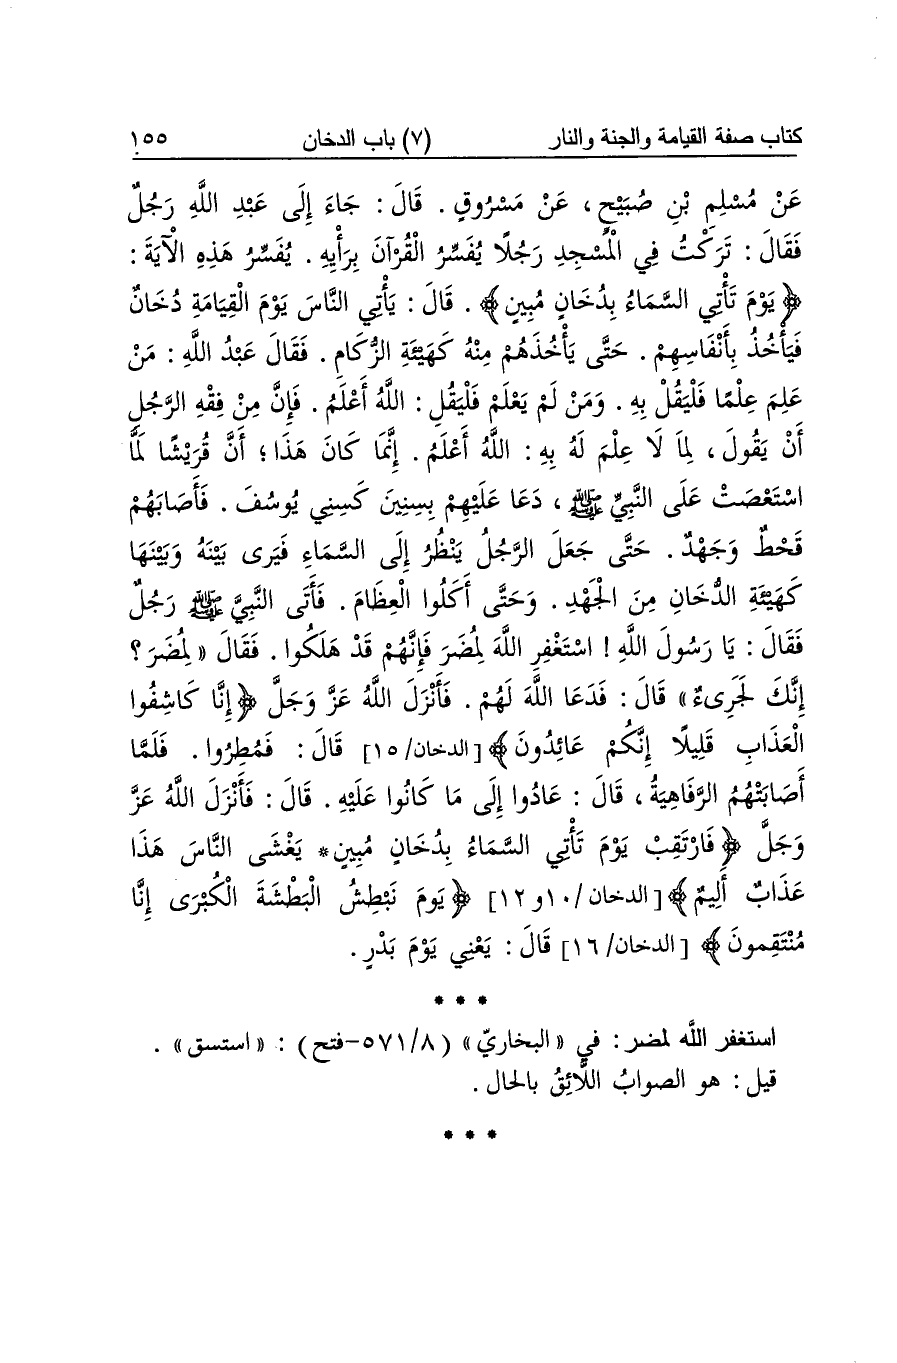 كتاب صفة القيامة والجنة والنار (٧) باب الدخان ١٥٥
عَنْ مُسْلِمِ بْنِ صُبَيْحٍ ، عَنْ مَسْرُوقٍ . قَالَ : جَاءَ إِلَى عَبْدِ اللَّهِ رَجُلٌ
فَقَالَ : تَرَكْتُ فِي الْمَسْجِدِ رَجُلًا يُفَسِّرُ الْقُرْآنَ بِرَأْيِهِ . يُفَسِّرُ هَذِهِ الْآيَةَ :
﴿ يَوْمَ تَأْتِي السَّمَاءُ بِدُخَانٍ مُبِينٍ ﴾ . قَالَ : يَأْتِي النَّاسَ يَوْمَ الْقِيَامَةِ دُخَانٌ
فَيَأْخُذُ بِأَنْفَاسِهِمْ . حَتَّى يَأْخُذَهُمْ مِنْهُ كَهَيْئَةِ الزُّكَامِ . فَقَالَ عَبْدُ اللَّهِ : مَنْ
عَلِمَ عِلْمًا فَلْيَقُلْ بِهِ . وَمَنْ لَمْ يَعْلَمْ فَلْيَقُلِ : اللَّهُ أَعْلَمُ . فَإِنَّ مِنْ فِقْهِ الرَّجُلِ
أَنْ يَقُولَ ، لِمَا لَا عِلْمَ لَهُ بِهِ : اللَّهُ أَعْلَمُ . إِنَّمَا كَانَ هَذَا ؛ أَنَّ قُرَيْشًا لَمَّا
اسْتَعْصَتْ عَلَى النَّبِيِّ ﷺ ، دَعَا عَلَيْهِمْ بِسِنِينَ كَسِنِي يُوسُفَ . فَأَصَابَهُمْ
قَحْطٌ وَجَهْدٌ . حَتَّى جَعَلَ الرَّجُلُ يَنْظُرُ إِلَى السَّمَاءِ فَيَرَى بَيْنَهُ وَبَيْنَهَا
كَهَيْئَةِ الدُّخَانِ مِنَ الْجَهْدِ . وَحَتَّى أَكَلُوا الْعِظَامَ . فَأَتَى النَّبِيَّ ﷺ رَجُلٌ
فَقَالَ : يَا رَسُولَ اللَّهِ ! اسْتَغْفِرِ اللَّهَ لِمُضَرَ فَإِنَّهُمْ قَدْ هَلَكُوا . فَقَالَ « لِمُضَرَ ؟
إِنَّكَ لَجَرِىءٌ » قَالَ : فَدَعَا اللَّهَ لَهُمْ . فَأَنْزَلَ اللَّهُ عَزَّ وَجَلَّ ﴿ إِنَّا كَاشِفُوا
الْعَذَابِ قَلِيلًا إِنَّكُمْ عَائِدُونَ ﴾ [الدخان/١٥] قَالَ : فَمُطِرُوا . فَلَمَّا
أَصَابَتْهُمُ الرَّفَاهِيَةُ ، قَالَ : عَادُوا إِلَى مَا كَانُوا عَلَيْهِ . قَالَ : فَأَنْزَلَ اللَّهُ عَزَّ
وَجَلَّ ﴿ فَارْتَقِبْ يَوْمَ تَأْتِي السَّمَاءُ بِدُخَانٍ مُبِينٍ * يَغْشَى النَّاسَ هَذَا
عَذَابٌ أَلِيمٌ ﴾ [الدخان/١٠و١٢] ﴿ يَوْمَ نَبْطِشُ الْبَطْشَةَ الْكُبْرَى إِنَّا
مُنْتَقِمُونَ ﴾ [الدخان/١٦] قَالَ : يَعْنِي يَوْمَ بَدْرٍ .
* * *
استغفر اللَّه لمضر : في « البخاريّ » (٨/٥٧١-فتح) : « استسق » .
قيل : هو الصوابُ اللَّائِقُ بالحال .
* * *